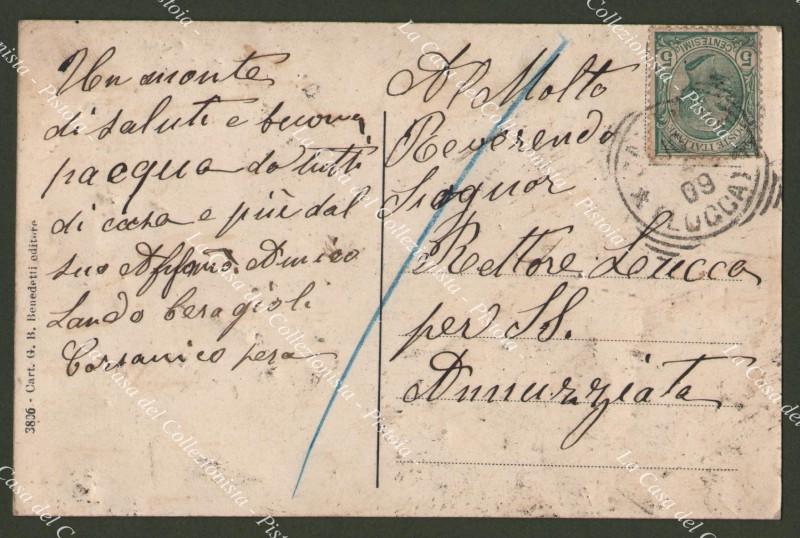 Un monte
di saluti e buona
pacqua da tutti
di casa e più dal
suo Affmo Amico
Lando Ceragioli
Corsanico pera
Al Molto
Reverendo
Signor
Rettore Lucca
per SS.
Annunziata
3806 - Cart. G. B. Benedetti editore
5 CENTESIMI 5
POSTE ITALIANE
09
(LUCCA)
La Casa del Collezionista - Pistoia